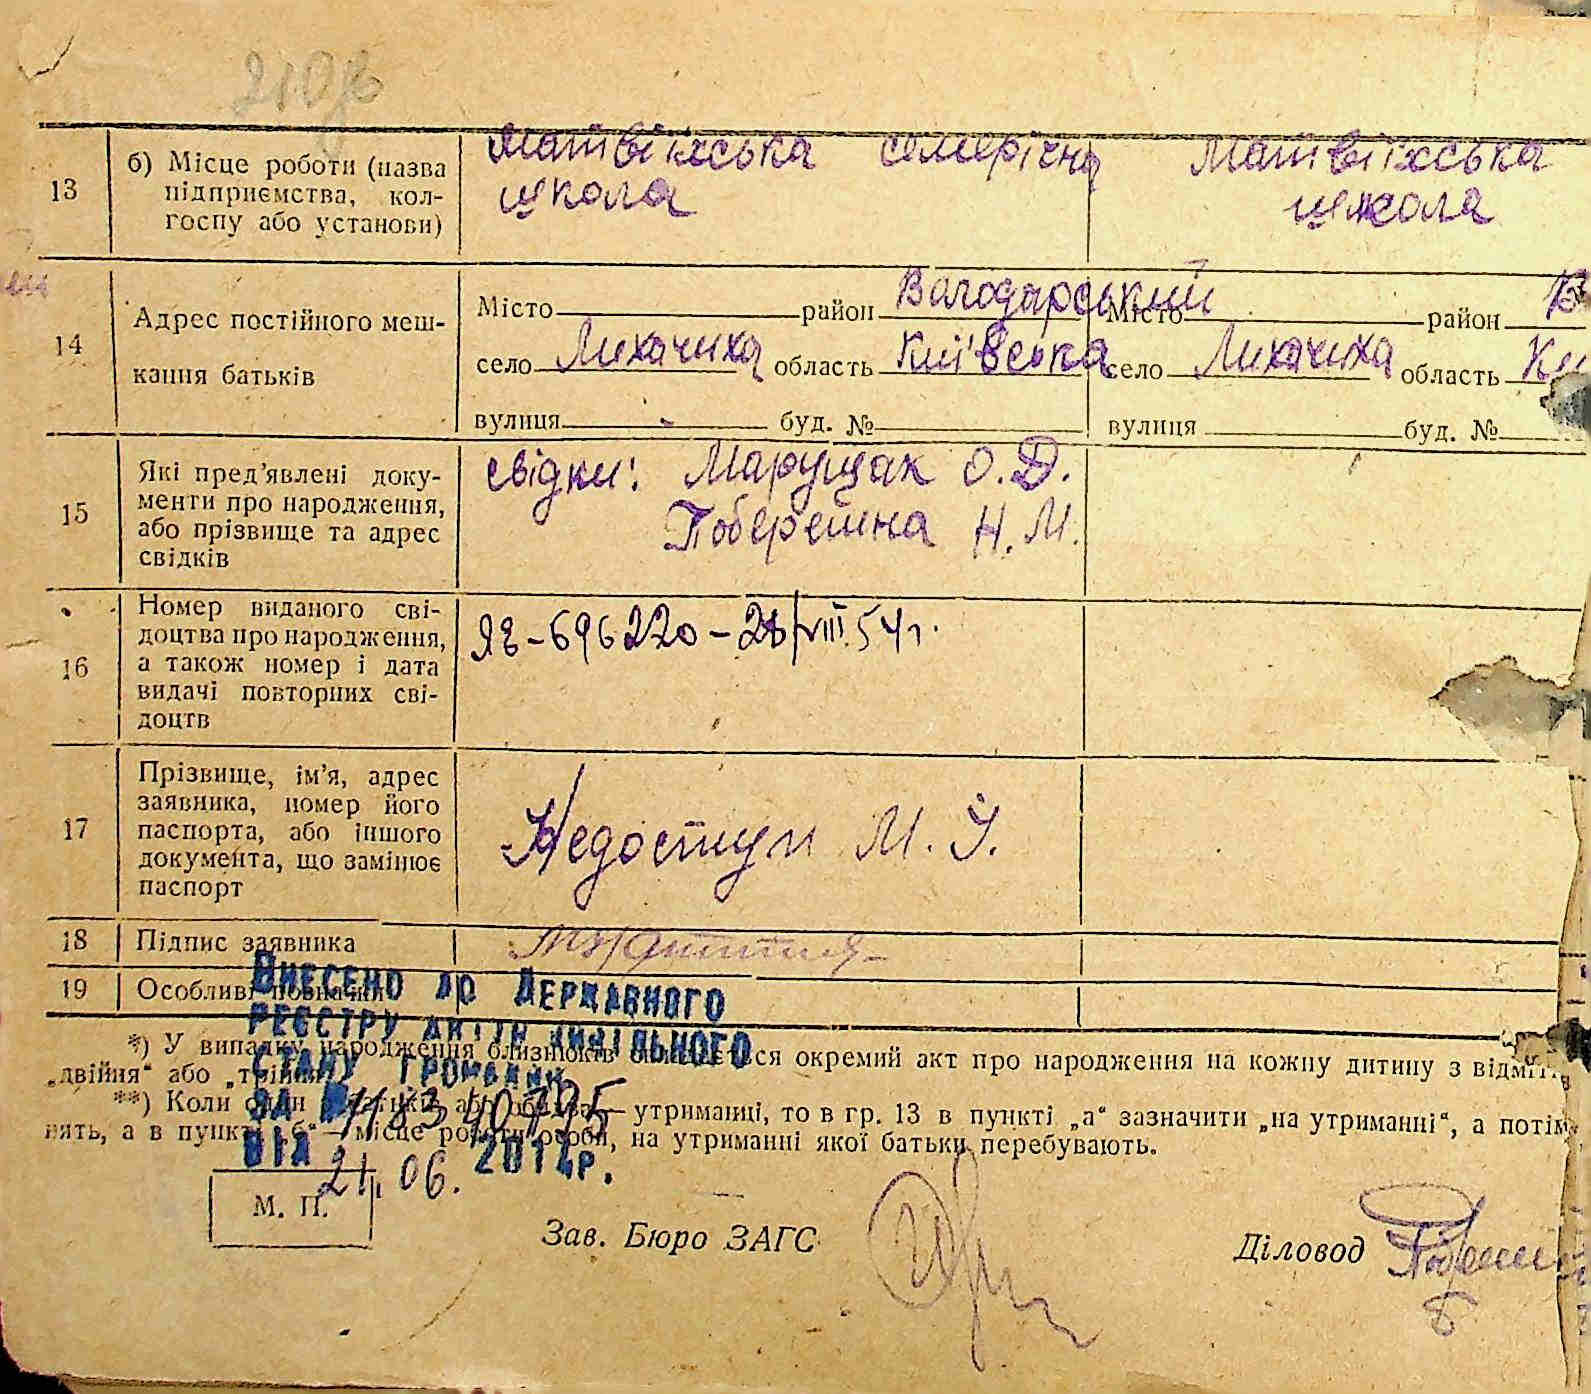 13 б) Місце роботи (назва підприємства, колгоспу або установи)
Матвіїхська семерічна Матвіїхська
школа школа
14 Адрес постійного мешкання батьків
Місто район Вагодарський Місто район
село Лихачиха область Київська село Лихачиха область
вулиця буд. № вулиця буд. №
15 Які пред'явлені документи про народження, або прізвище та адрес свідків
свідки: Марущак О. Д.
Поберейна Н. М.
16 Номер виданого свідоцтва про народження, а також номер і дата видачі повторних свідоцтв
696220 – 28/VIII.54 г.
17 Прізвище, ім'я, адрес заявника, номер його паспорта, або іншого документа, що замінює паспорт
Недоступ М. У.
18 Підпис заявника
19 Особливі позначки
Внесено до Державного
реєстру актів цивільного
стану громадян
за №1183 40795
від 21.06. 2012р.
*) У випадку народження близнюків складається окремий акт про народження на кожну дитину з
„двійня“ або „трійня“
**) Коли один з батьків або обидва — утриманці, то в гр. 13 в пункті „а“ зазначити „на утриманні“, а потім
, а в пункті „б“ — місце роботи особи, на утриманні якої батьки перебувають.
М. П.
Зав. Бюро ЗАГС Діловод